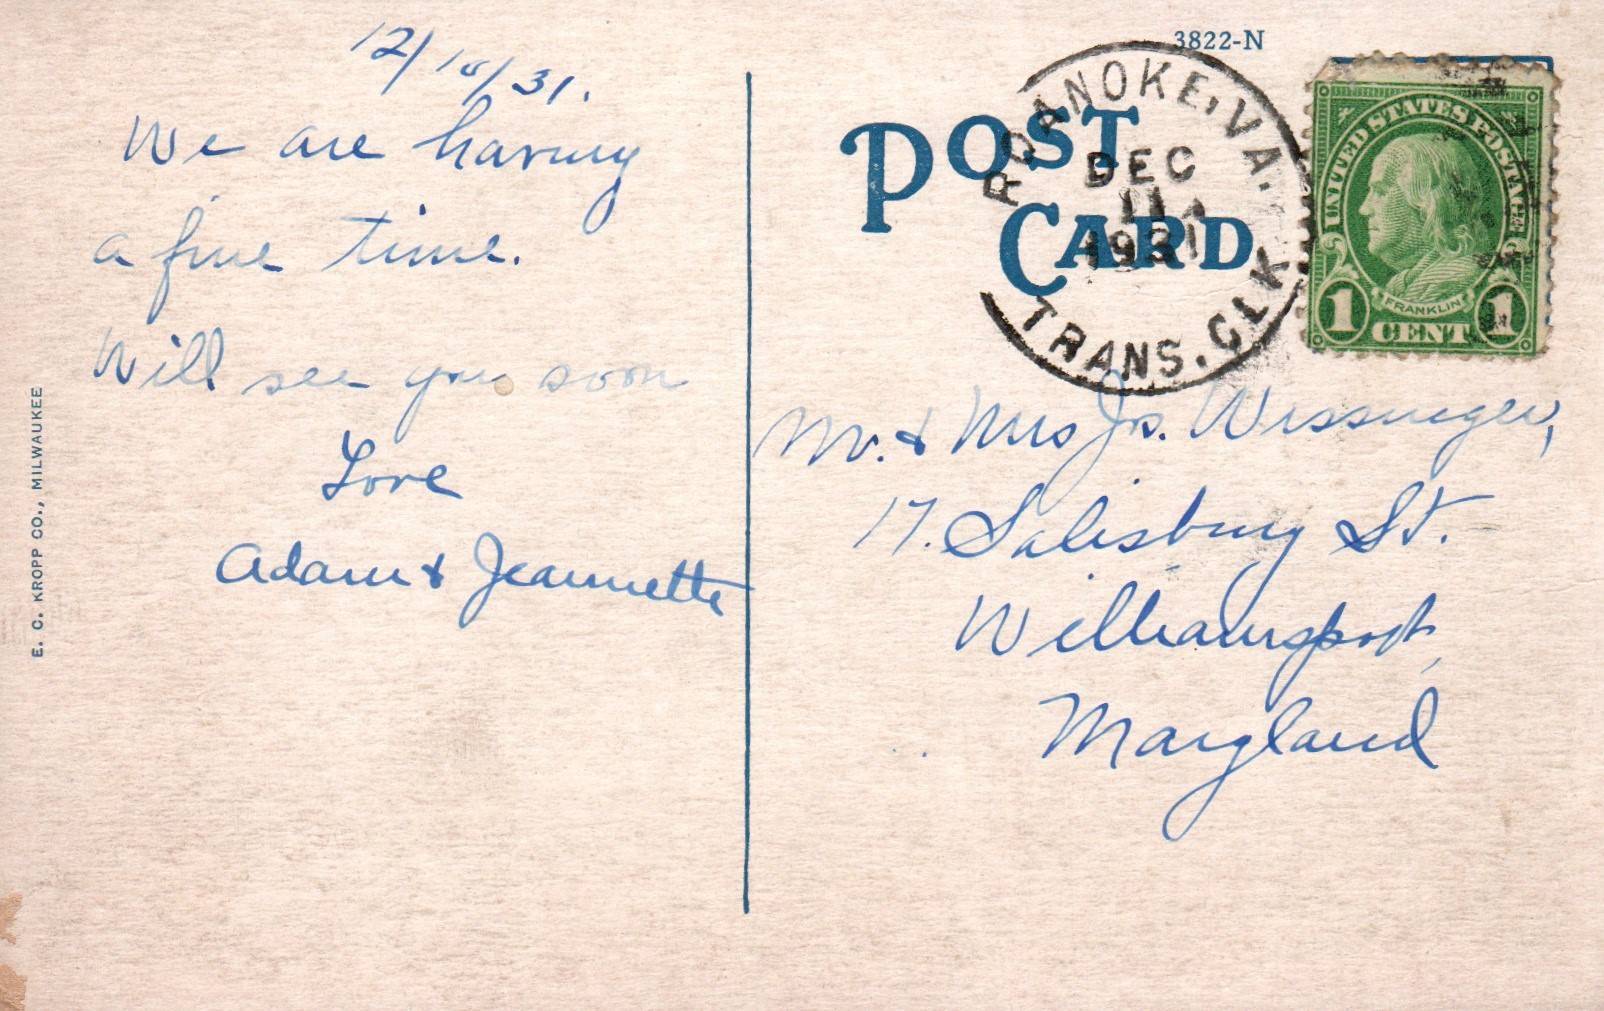 12/10/31.
We are having
a fine time.
Will see you soon
Love
Adam & Jeannette
E. C. KROPP CO., MILWAUKEE
3822-N
POST
CARD
ROANOKE, VA.
DEC
11
1931
TRANS. CLK
UNITED STATES POSTAGE
FRANKLIN
1 CENT 1
Mr. & Mrs Js.
17. Salisbury St.
Williamsport,
Maryland